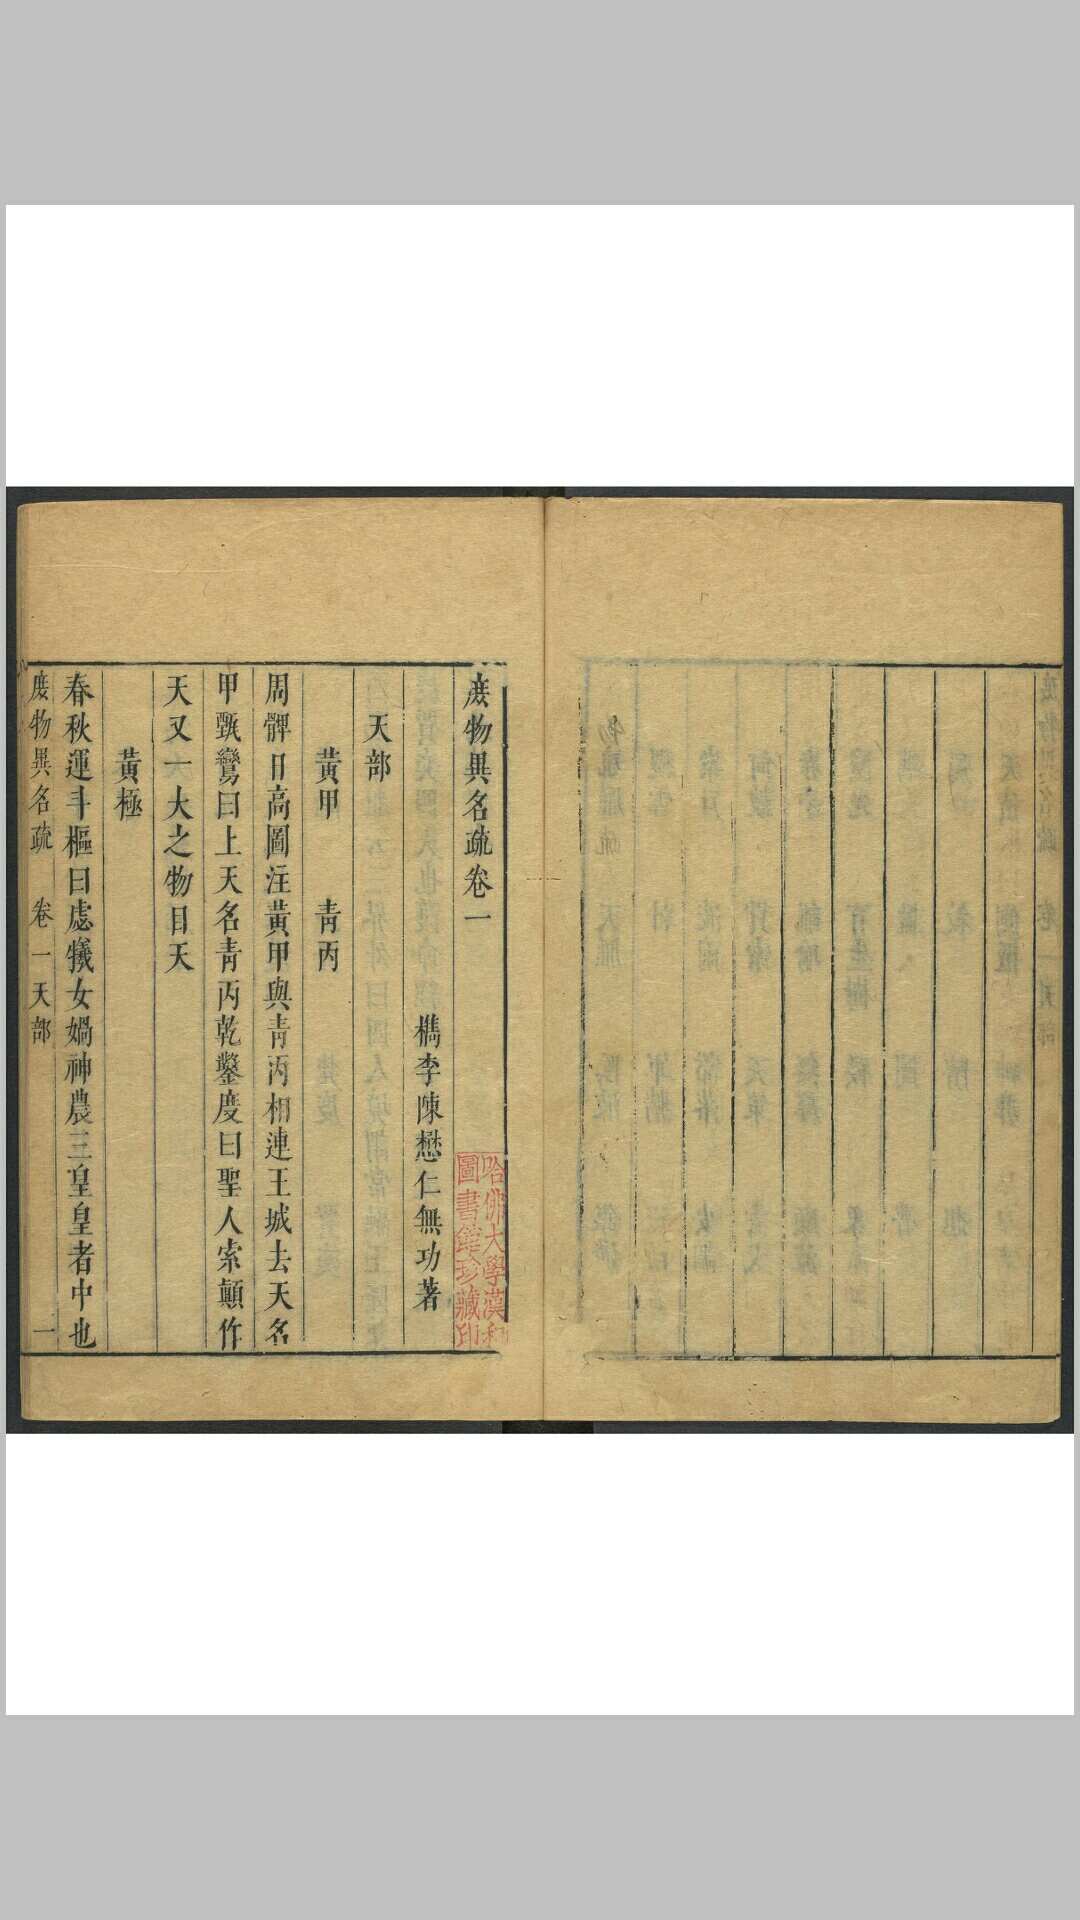 庻物異名疏卷一
檇李陳懋仁無功著
天部
黃甲　青丙
周髀日高圖注黃甲與青丙相連王城去天名
甲甄鸞曰上天名青丙乾鑿度曰聖人索顛作
天又一大之物目天
黃極
春秋運斗樞曰虙犧女媧神農三皇皇者中也
庻物異名疏　卷一天部　一
哈佛大學漢和
圖書館珍藏印